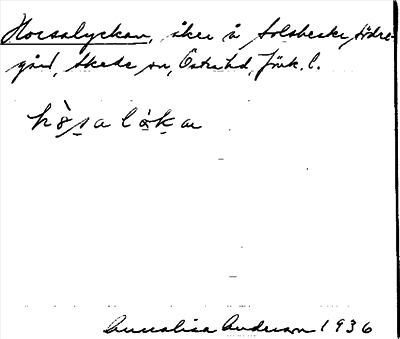 Horsalyckan, åker å Solsbecke södre-
gård, Skede sn, Östra hd, Jönk. l.
hò̀salókan
Annalisa Anderson 1936